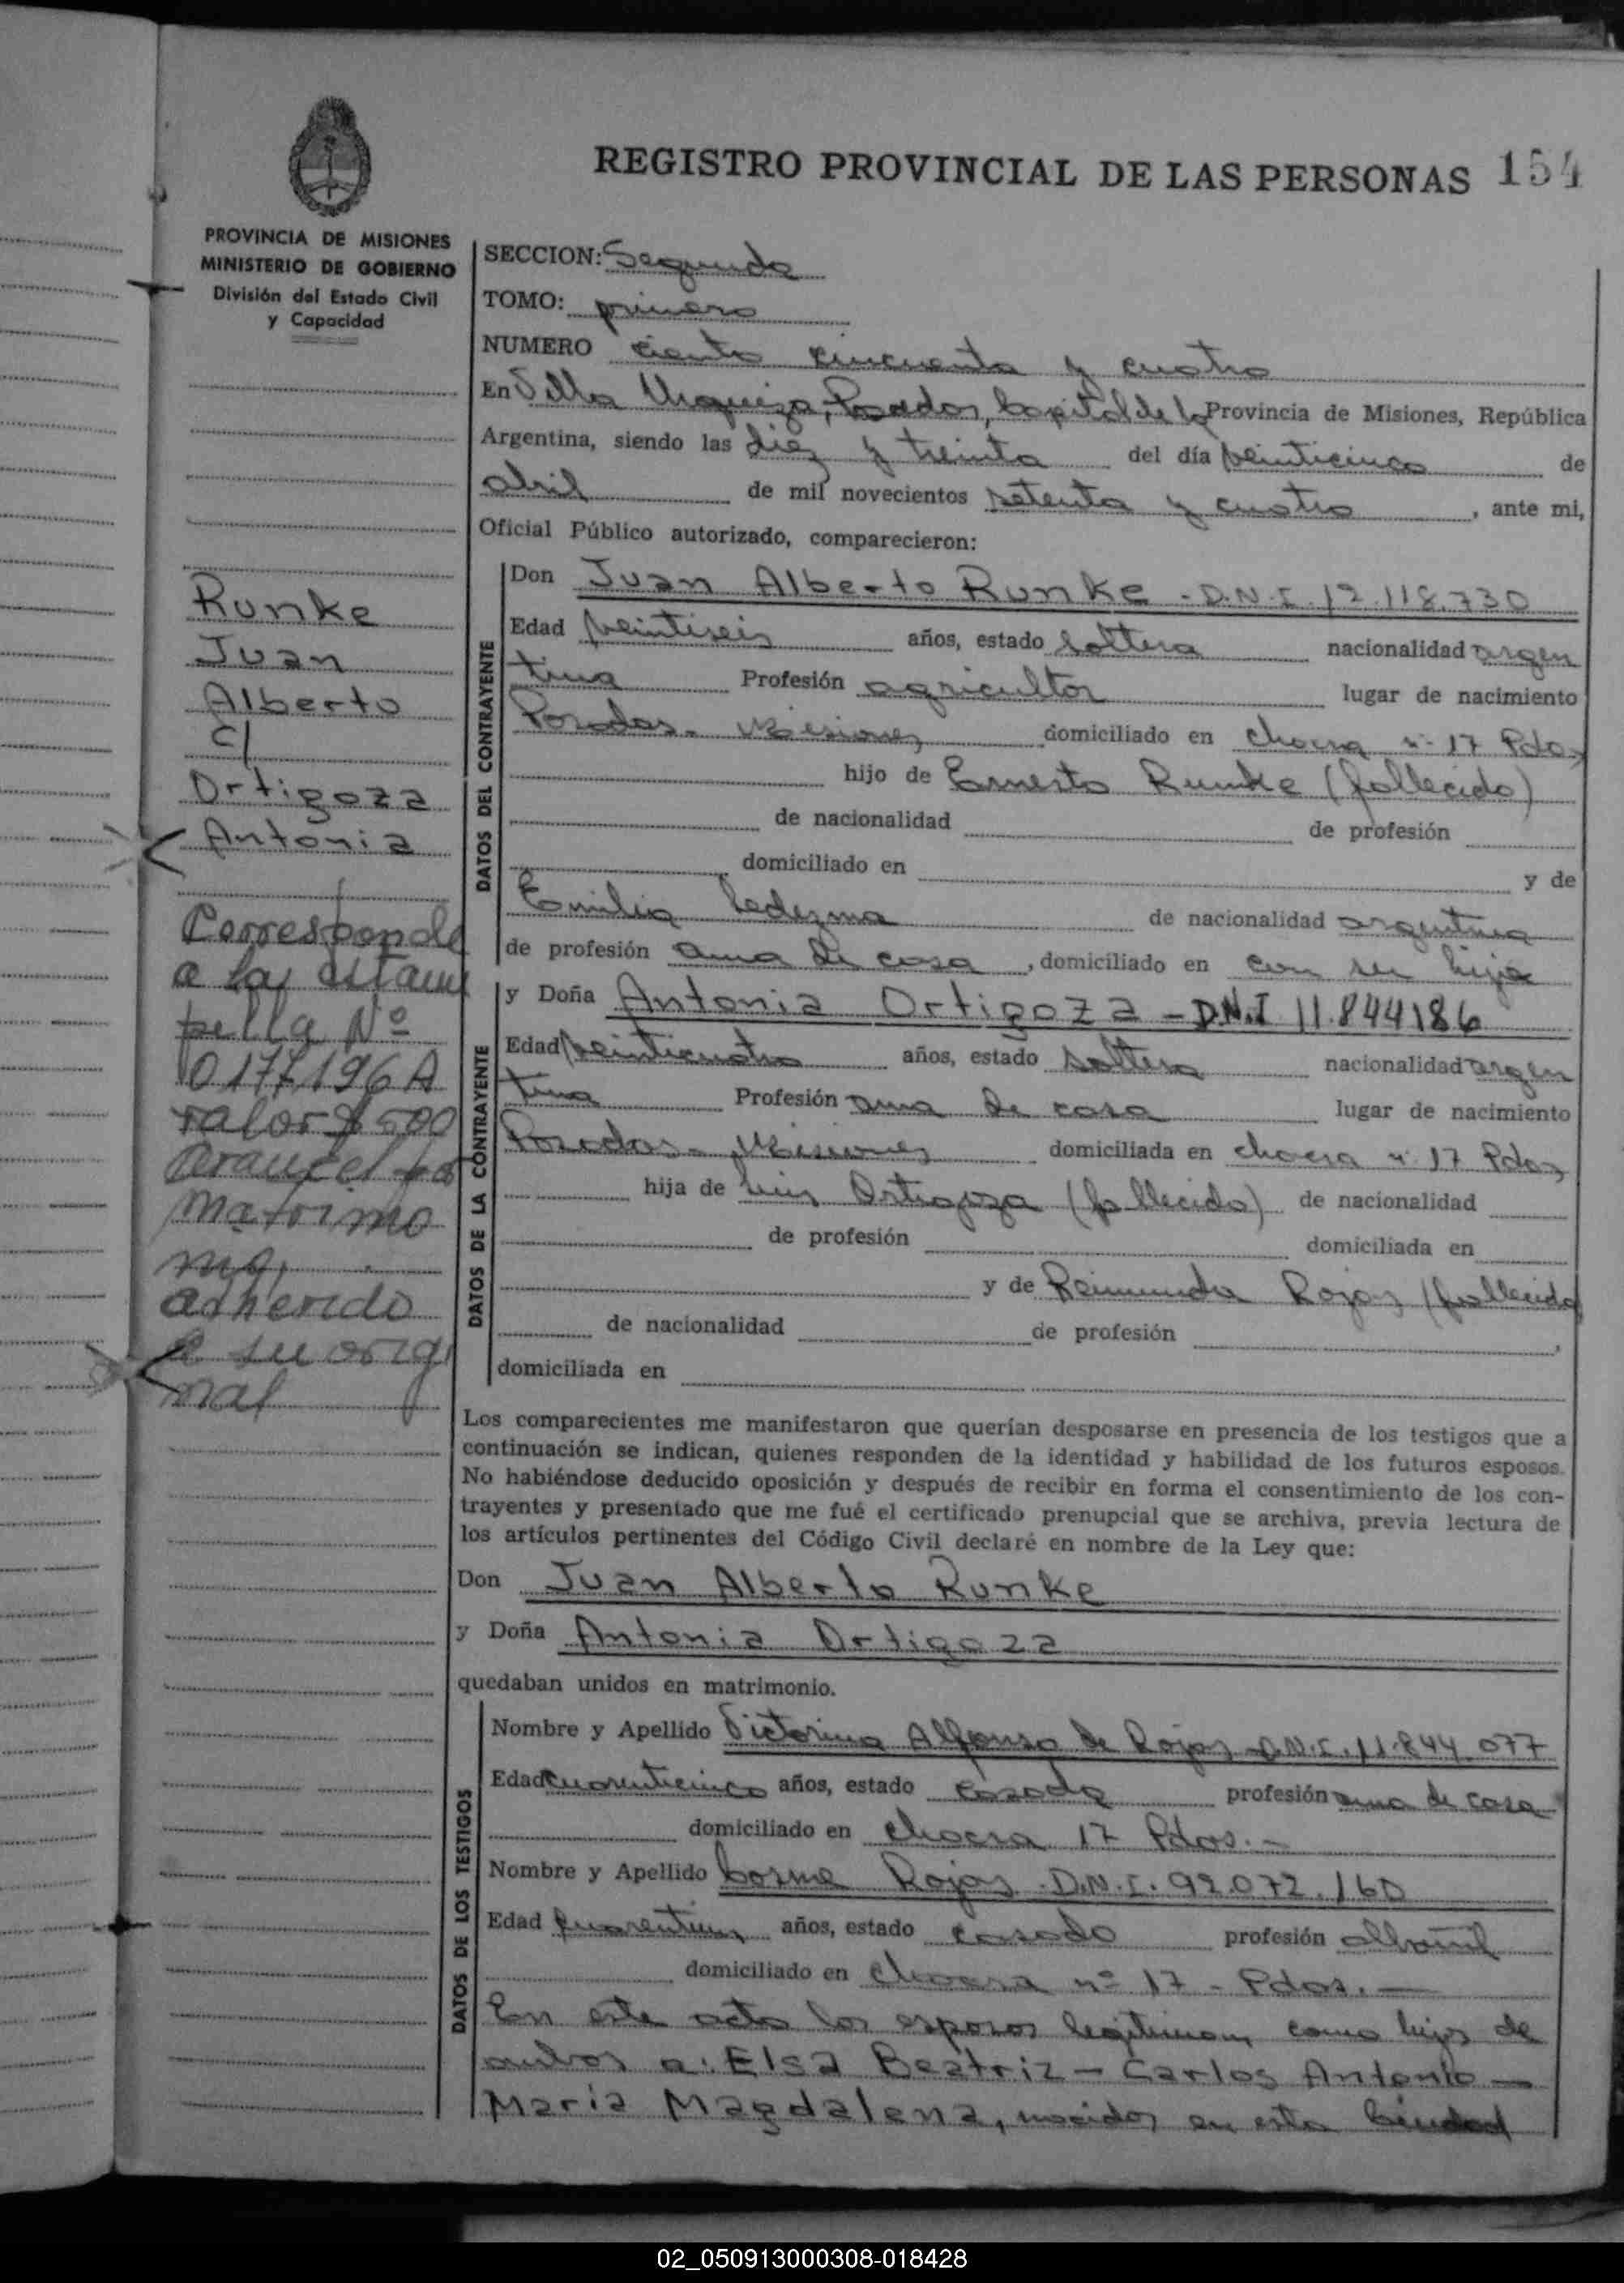 REGISTRO PROVINCIAL DE LAS PERSONAS 154
PROVINCIA DE MISIONES
MINISTERIO DE GOBIERNO
División del Estado Civil
y Capacidad
SECCION: Segunda
TOMO: primero
NUMERO ciento cincuenta y cuatro
En Villa Urquiza, Posadas, Capital de la Provincia de Misiones, República
Argentina, siendo las diez y treinta del día veinticinco de
abril de mil novecientos setenta y cuatro, ante mi,
Oficial Público autorizado, comparecieron:
Runke
Juan
Alberto
c/
Ortigoza
Antonia
Corresponde
a la estam
pilla Nº
0177196 A
valor $ 500
arancel
matrimo
nio,
adherido
a su origi
nal
DATOS DEL CONTRAYENTE
Don Juan Alberto Runke - D.N.I. 12.118.730
Edad veintiseis años, estado soltero nacionalidad argen
tina Profesión agricultor lugar de nacimiento
Posadas - Misiones domiciliado en chacra nº 17 Pdas
hijo de Ernesto Runke (fallecido)
de nacionalidad de profesión
domiciliado en y de
Emilia Ledezma de nacionalidad argentina
de profesión ama de casa, domiciliado en con su hijo
DATOS DE LA CONTRAYENTE
y Doña Antonia Ortigoza - D.N.I 11.844186
Edad veinticuatro años, estado soltera nacionalidad argen
tina Profesión ama de casa lugar de nacimiento
Posadas - Misiones domiciliada en chacra nº 17 Pdas
hija de Luis Ortigoza (fallecido) de nacionalidad
de profesión domiciliada en
y de Reimunda Rojas (fallecida
de nacionalidad de profesión ,
domiciliada en
Los comparecientes me manifestaron que querían desposarse en presencia de los testigos que a
continuación se indican, quienes responden de la identidad y habilidad de los futuros esposos.
No habiéndose deducido oposición y después de recibir en forma el consentimiento de los con-
trayentes y presentado que me fué el certificado prenupcial que se archiva, previa lectura de
los artículos pertinentes del Código Civil declaré en nombre de la Ley que:
Don Juan Alberto Runke
y Doña Antonia Ortigoza
quedaban unidos en matrimonio.
DATOS DE LOS TESTIGOS
Nombre y Apellido Victorina Alfonso de Rojas D.N.I. 11.844.077
Edad cuarenticinco años, estado casada profesión ama de casa
domiciliado en chacra 17 Pdas. -
Nombre y Apellido Cosme Rojas - D.N.I. 92.072.160
Edad años, estado casado profesión albañil
domiciliado en chacra nº 17 - Pdas. -
En este acto los esposos legitiman como hijos de
ambos a: Elsa Beatriz - Carlos Antonio -
María Magdalena, nacidos en esta Ciudad
02_050913000308-018428